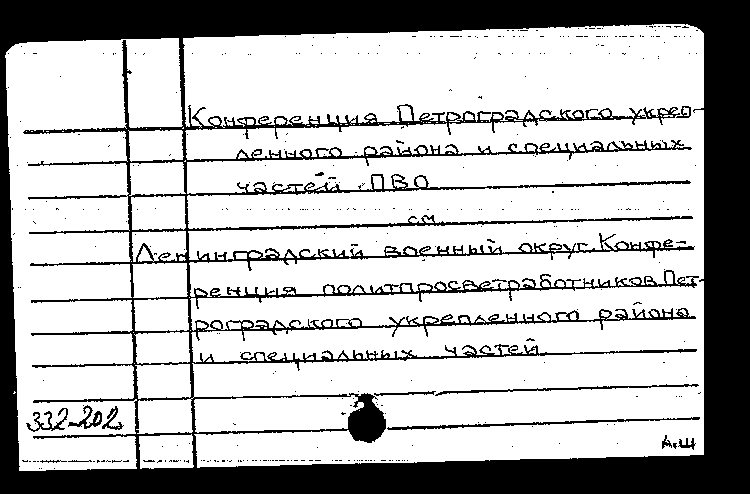 Конференция Петроградского укреп-
ленного района и специальных
частей ПВО
см.
Ленинградский военный округ. Конфе-
ренция политпросветработников Пет-
роградского укрепленного района
и специальных частей.
332-202
А.Щ